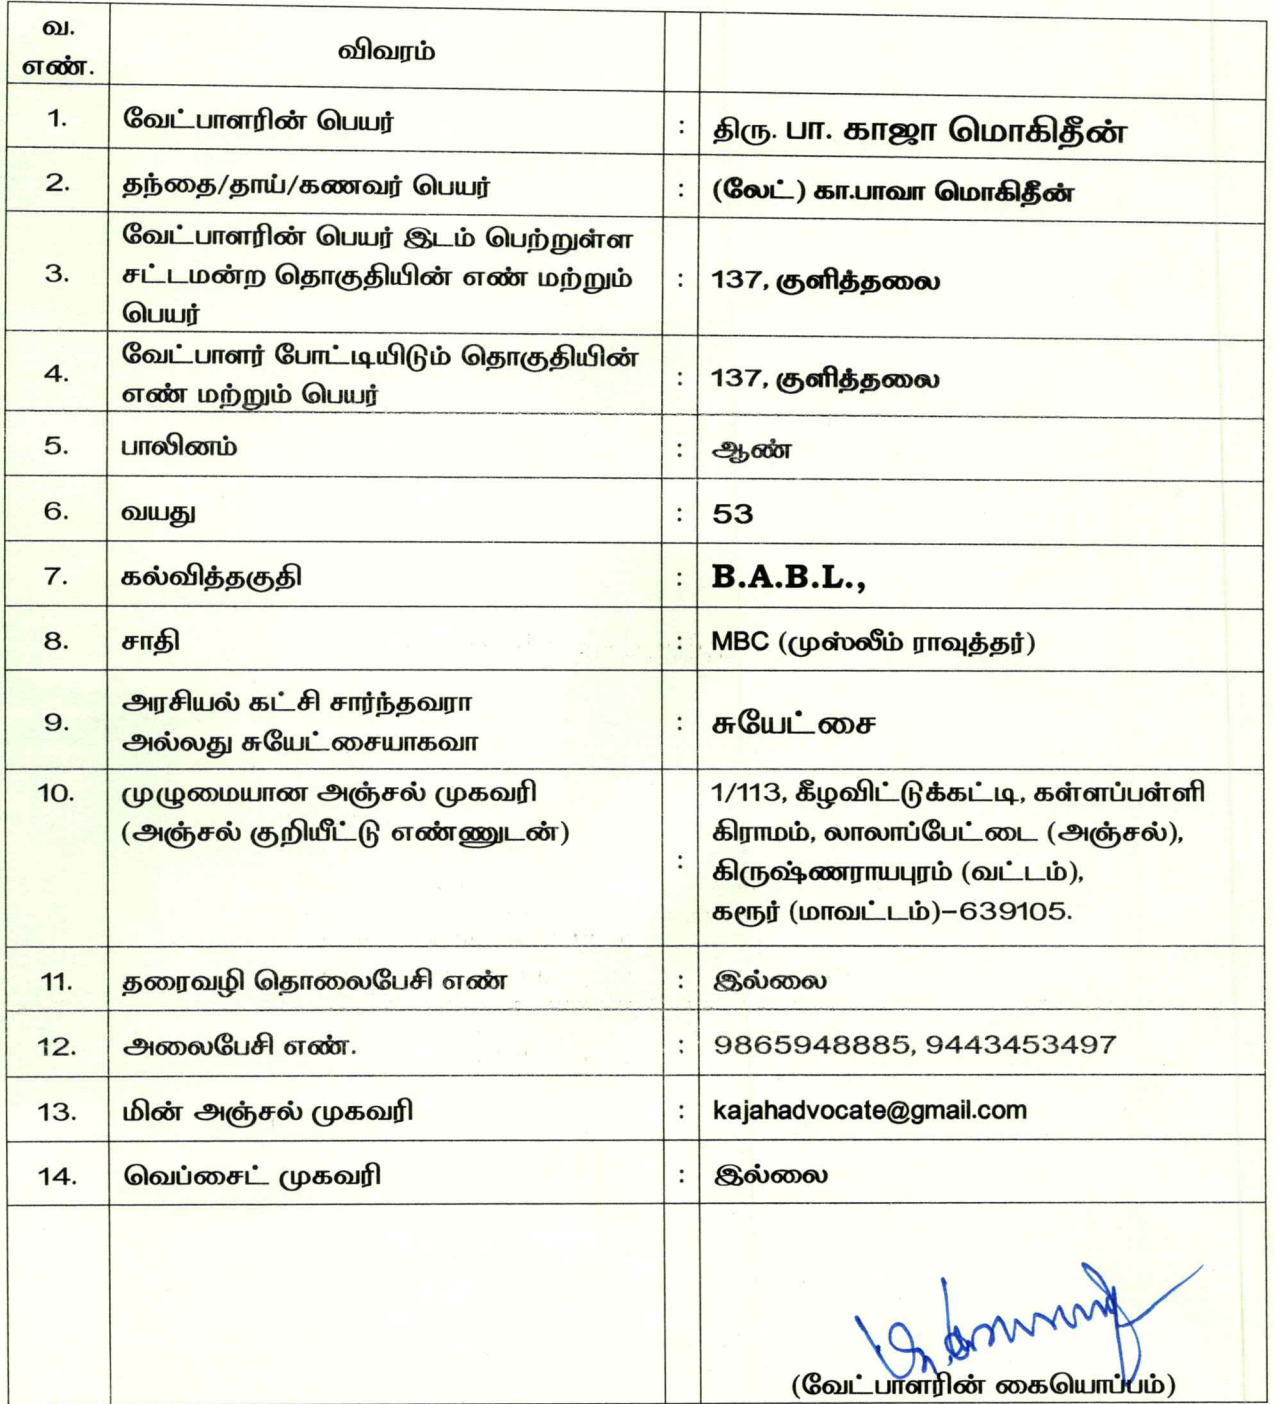 வ.
எண்.
விவரம்
1. வேட்பாளரின் பெயர் : திரு. பா. காஜா மொகிதீன்
2. தந்தை/தாய்/கணவர் பெயர் : (லேட்) கா.பாவா மொகிதீன்
வேட்பாளரின் பெயர் இடம் பெற்றுள்ள
3. சட்டமன்ற தொகுதியின் எண் மற்றும் : 137, குளித்தலை
பெயர்
வேட்பாளர் போட்டியிடும் தொகுதியின்
4. எண் மற்றும் பெயர் : 137, குளித்தலை
5. பாலினம் : ஆண்
6. வயது : 53
7. கல்வித்தகுதி : B.A.B.L.,
8. சாதி : MBC (முஸ்லீம் ராவுத்தர்)
9. அரசியல் கட்சி சார்ந்தவரா
அல்லது சுயேட்சையாகவா : சுயேட்சை
10. முழுமையான அஞ்சல் முகவரி
(அஞ்சல் குறியீட்டு எண்ணுடன்) :
1/113, கீழவிட்டுக்கட்டி, கள்ளப்பள்ளி
கிராமம், லாலாப்பேட்டை (அஞ்சல்),
கிருஷ்ணராயபுரம் (வட்டம்),
கரூர் (மாவட்டம்)–639105.
11. தரைவழி தொலைபேசி எண் : இல்லை
12. அலைபேசி எண். : 9865948885, 9443453497
13. மின் அஞ்சல் முகவரி : kajahadvocate@gmail.com
14. வெப்சைட் முகவரி : இல்லை
(வேட்பாளரின் கையொப்பம்)